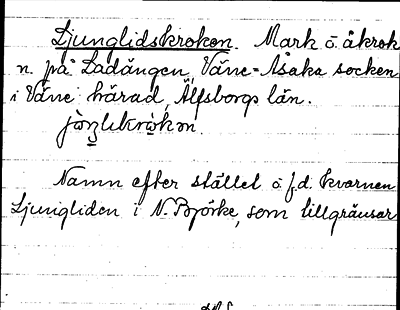 Ljunglidskroken. Mark o. åkrok
n. på Ladängen, Väne-Åsaka socken
i Väne härad, Älfsborgs län.
Namn efter stället o. f.d. kvarnen
Ljungliden i N. Björke, som tillgränsar